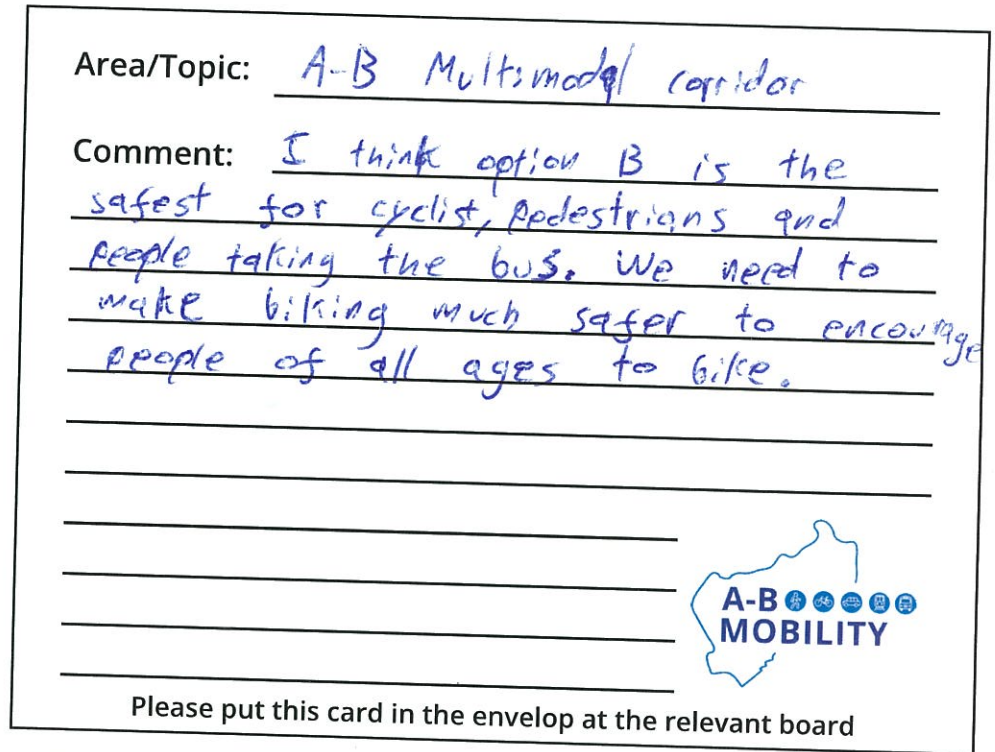 Area/Topic: A-B Multimodal corridor
Comment: I think option B is the
safest for cyclist, pedestrians and
people taking the bus. We need to
make biking much safer to encourage
people of all ages to bike.
A-B
MOBILITY
Please put this card in the envelop at the relevant board